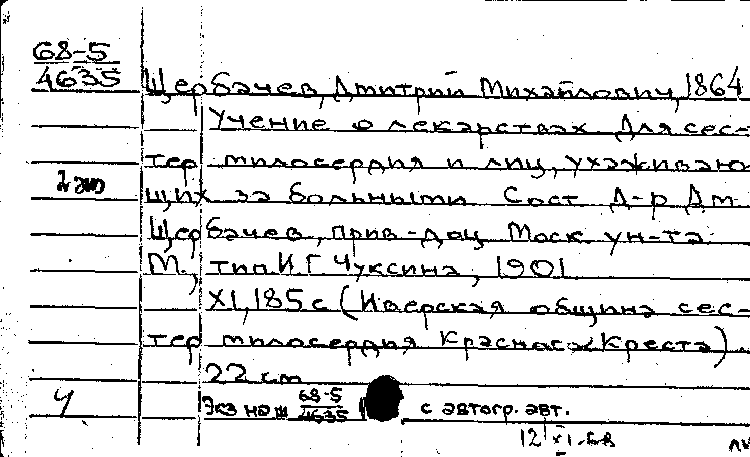 68-5
4635
Щербачев, Дмитрий Михайлович, 1864
Учение о лекарствах для сес-
тер милосердия и лиц, ухаживаю-
2 экз
щих за больными Сост Д-р Дм
Щербачев, прив-доц Моск ун-та
М, тип И Г Чуксина, 1901
XI, 185 с (Иверская община сес-
тер милосердия Красного Креста)
22 см
Экз на ш 68-5
4635
с автогр. авт.
12 XI-